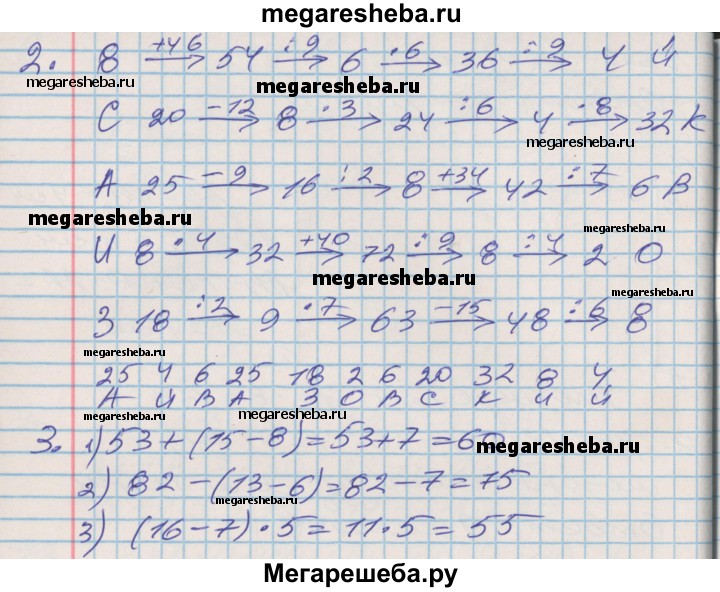 megaresheba.ru
2. 8 +46→ 54 :9→ 6 ·6→ 36 :9→ 4 Й
megaresheba.ru megaresheba.ru
С 20 -12→ 8 ·3→ 24 :6→ 4 ·8→ 32 К
megaresheba.ru
А 25 -9→ 16 :2→ 8 +34→ 42 :7→ 6 В
megaresheba.ru megaresheba.ru
И 8 ·4→ 32 +40→ 72 :9→ 8 :4→ 2 О
megaresheba.ru
З 18 :2→ 9 ·7→ 63 -15→ 48 :6→ 8
megaresheba.ru megaresheba.ru
25 4 6 25 18 2 6 20 32 8 4
А Й В А З О В С К И Й
megaresheba.ru
3. 1) 53+(15-8)=53+7=60
megaresheba.ru
2) 82-(13-6)=82-7=75
megaresheba.ru
3) (16-7)·5=11·5=55
Мегарешеба.ру